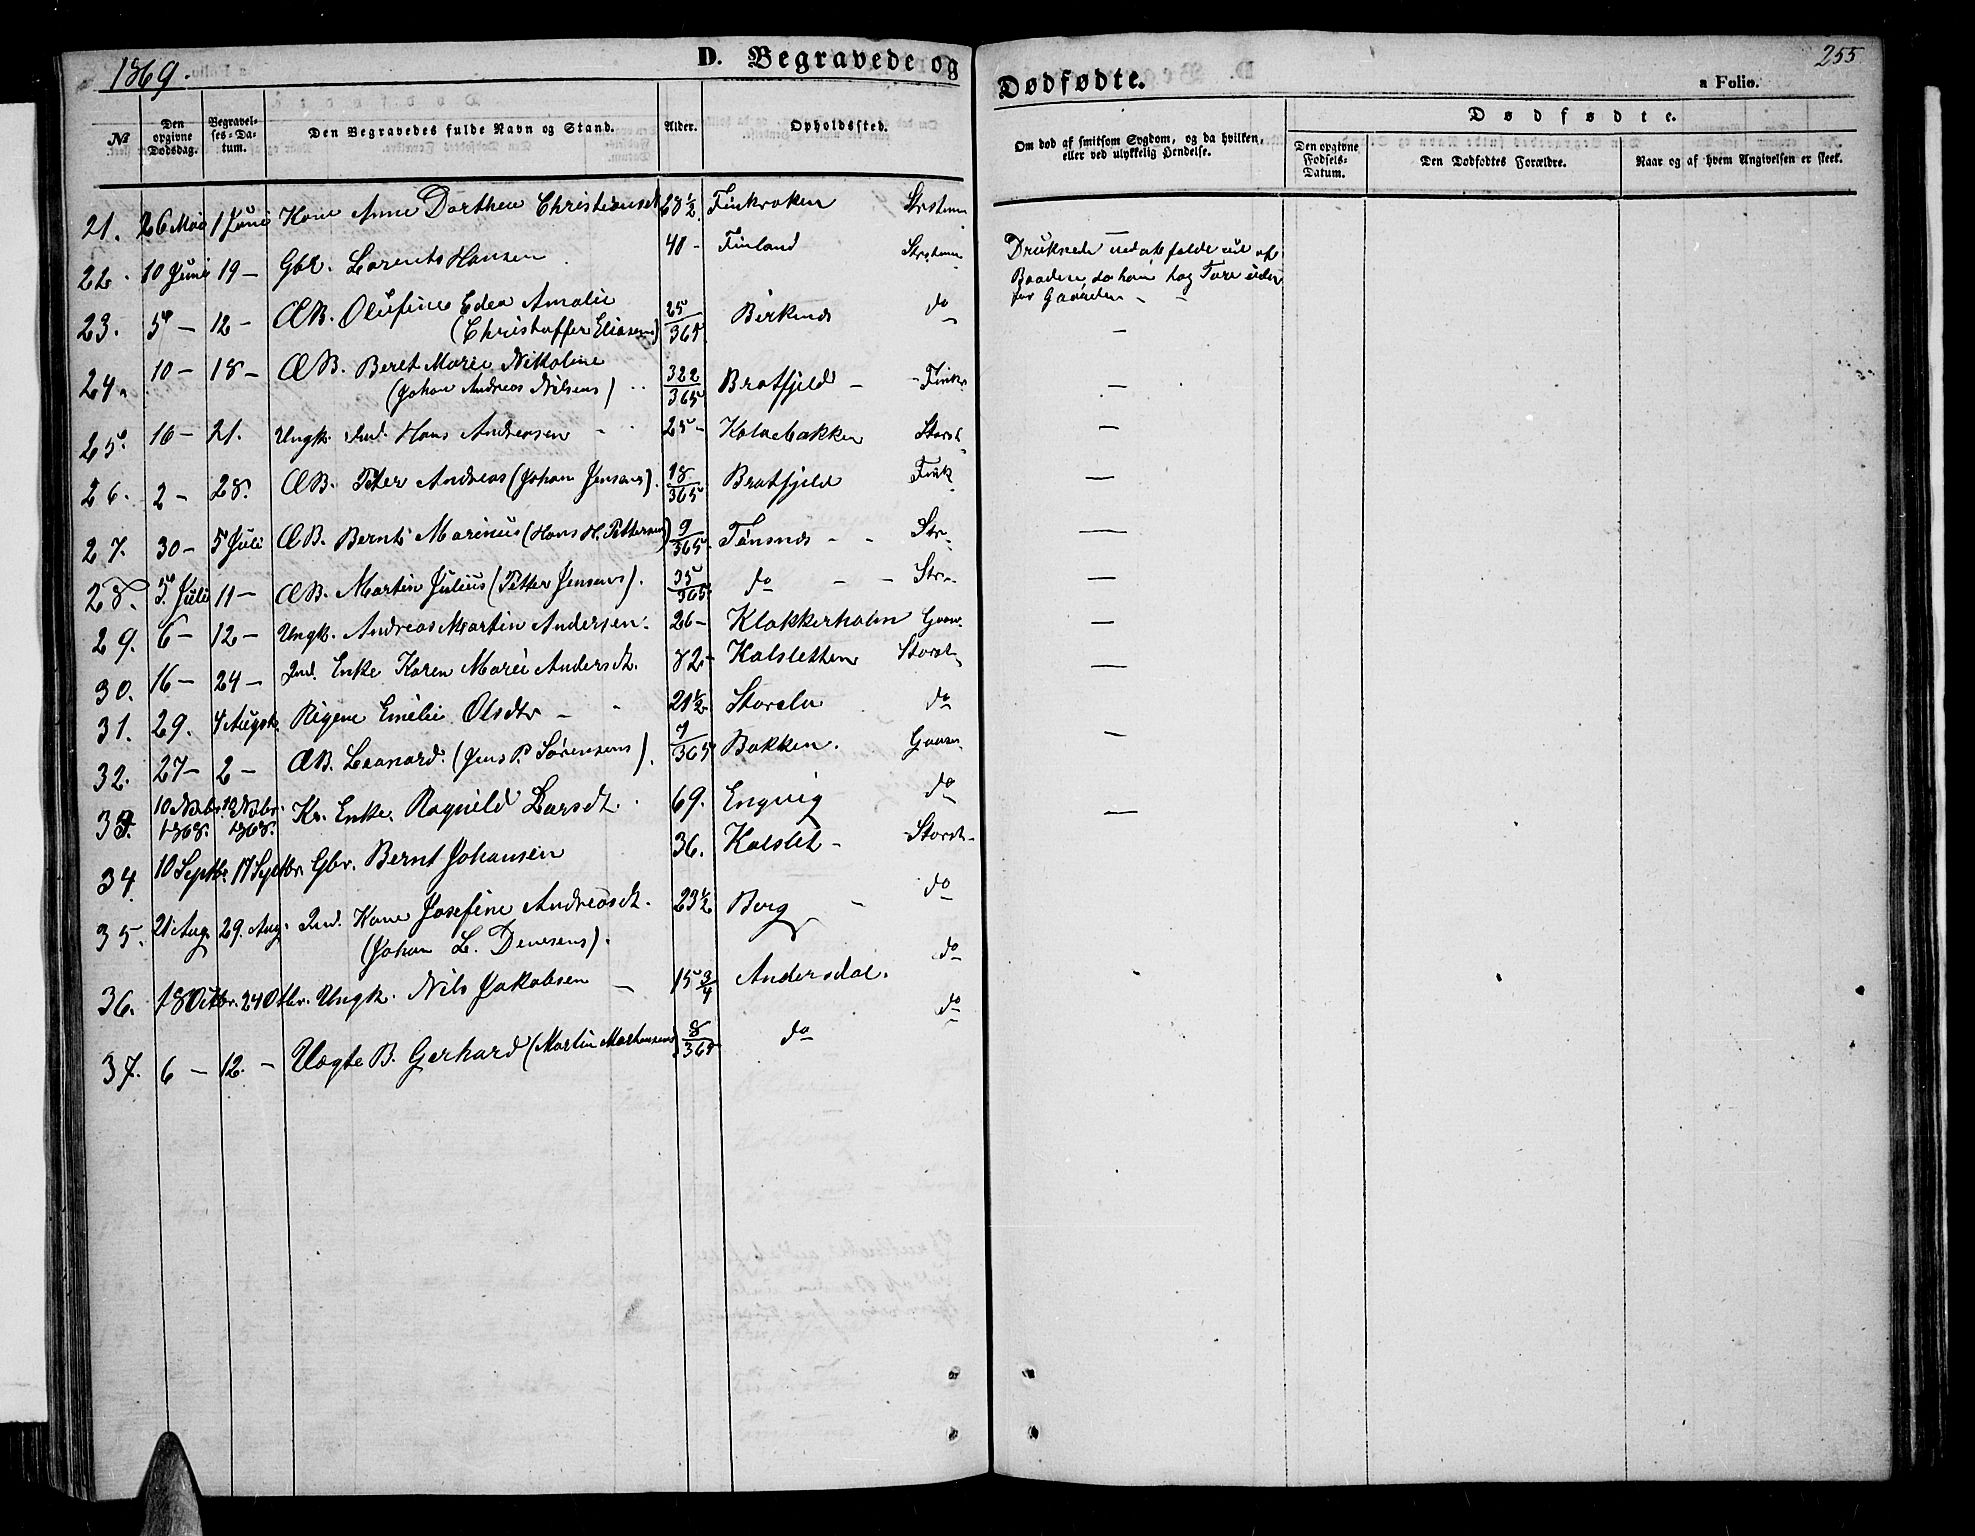 1869.
D. Begravede og
Dødfødte.
255
a Folio.
№
Den opgivne Dødsdag.
Begravelses-Datum.
Den Begravedes fulde Navn og Stand.
Alder.
Opholdssted.
Om død af smitsom Sygdom, og da hvilken, eller ved ulykkelig Hendelse.
Dødfødte.
Den opgivne Fødsels-Datum.
Den Dødfødtes Forældre.
Naar og af hvem Angivelsen er skeet.
21. 26 Mai 1 Juni Kone Anne Dorthea Christiansd 28½ Finkroken
22. 10 Juni 19 – Gbr. Lorents Hansen 40 – Finland
Druknede ved at falde ud af
Baaden, da han tog Tare uden
for Gaarden –
23. 5 – 12 – ÆB. Olufine Edea Amalie 25/365 Birkenes do
(Christoffer Eliasens) –
24. 10 – 18 – ÆB. Beret Marie Nikoline 322/365 Bratfjeld – Finkr
(Johan Andreas Nilsens) –
25. 16 – 21. Ungk. Ind. Hans Andersen 25 – Storst –
26. 2 – 28. ÆB. Peter Andreas (Johan Jensens). 18/365 Bratfjeld Fink –
27. 30 – 5 Juli ÆB. Bernt Marinus (Hans H. Pettersens) 9/365 Tønsnes – Str. –
28. 5. Juli 11 – ÆB. Martin Julius (Petter Jensens). 35/365 do – Str. –
29. 6 – 12 – Ungk. Andreas Martin Andersen. 26 – Klokkerholm –
30. 16 – 24 – Ind. Enke Karen Marie Andersdt. 82 – Kalsletten Storst. –
31. 29. 4 August. Pigen Emelie Olsdtr – 21½ do
32. 27 – 2 – ÆB. Leonard. (Jens P. Sørensens). 9/365 Bakken. –
33. 10 Novbr. 1868. 18 Novbr. 1868. Enke. Ragnild Larsdt. 69. Engvig do –
34. 10 Septbr. 17 Septbr. Gbr. Bernt Johansen 36. Kalslet – Storst –
35. 21 Aug. 29. Aug. Ind. Kone Josefine Andreasdt. 23½ Berg do
(Johan L. Denesens).
36. 18 Octbr. 24 Otbr. Ungk. Nils Jakobsen – 15¾ Andersdal. do
37. 6 – 12. – Uægte B. Gerhard (Martin Mortensens) 8/365 do do